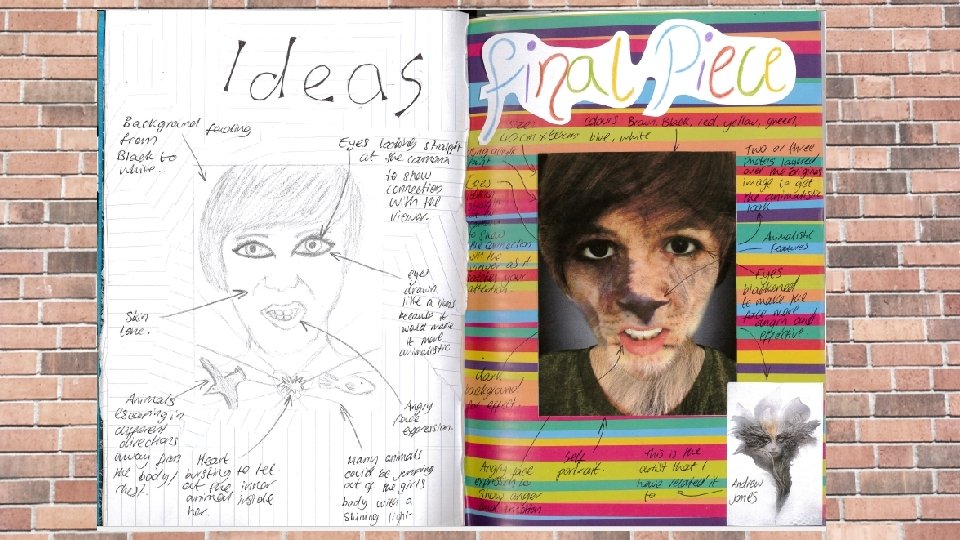 Ideas
Background fading
from
Black to
white.
Eyes looking straight
at the camera
to show
connection
with the
viewer.
eyes
drawn
like a
because it
would make
it more
animalistic.
Skin
tone.
Angry
face
expression.
Animals
escaping in
different
directions
away from
the body/
chest.
Heart
bursting to let
out the inner
animal inside
her.
Many animals
could be jumping
out of the girls
body with a
shining light.
final Piece
colours Brown, Black, red, yellow, green,
blue, white
Two or three
photos layered
over the original
image to get
the animalistic
look
Animalistic
features
Eyes
blackened
to make the
face more
angry and
effective
Eyes
to show
the connection
with the
viewer as it
your
attention.
dark
background
for effect.
Angry face
expression to
show anger
Self
portrait.
This is the
artist that I
have related it
to
Andrew
Jones